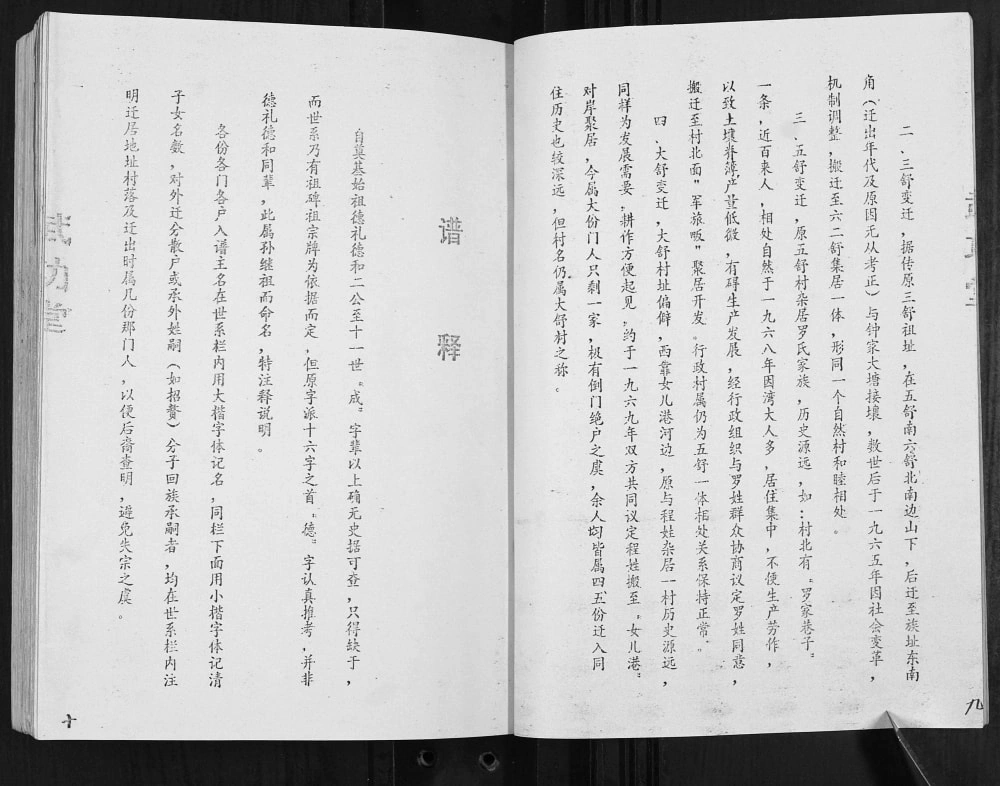 二、三舒变迁，据传原三舒祖址，在五舒南六舒北南边山下，后迁至族址东南
角（迁出年代及原因无从考正）与钟家大塘接壤，数世后于一九六五年因社会变革，
机制调整，搬迁至六二舒集居一体，形同一个自然村和睦相处。
三、五舒变迁，原五舒村杂居罗氏家族，历史源远，如：村北有“罗家巷子”
一条，近百来人，相处自然于一九六八年因湾大人多，居住集中，不便生产劳作，
以致土壤瘠薄产量低微，有碍生产发展，经行政组织与罗姓群众协商议定罗姓同意，
搬迁至村北面“军旅畈”聚居开发。行政村属仍为五舒一体相处关系保持正常。
四、大舒变迁，大舒村址偏僻，西靠女儿港河边，原与程姓杂居一村历史源远，
同样为发展需要，耕作方便起见，约于一九六九年双方共同议定程姓搬至“女儿港”
对岸聚居，今属大份门人只剩一家，极有倒门绝户之虞，余人均皆属四五份迁入同
住历史也较深远，但村名仍属大舒村之称。
九
谱释
自奠基始祖德礼德和二公至十一世“成”字辈以上确无史据可查，只得缺于，
而世系乃有祖碑祖宗牌为依据而定，但原字派十六字之首“德”字认真推考，并非
德礼德和同辈，此属孙继祖而命名，特注释说明。
各份各门各户入谱主名在世系栏内用大楷字体记名，同栏下面用小楷字体记清
子女名数，对外迁分散户或承外姓嗣（如招赘）分子回族承嗣者，均在世系栏内注
明迁居地址村落及迁出时属几份那门人，以便后裔查明，避免失宗之虞。
十
武功堂